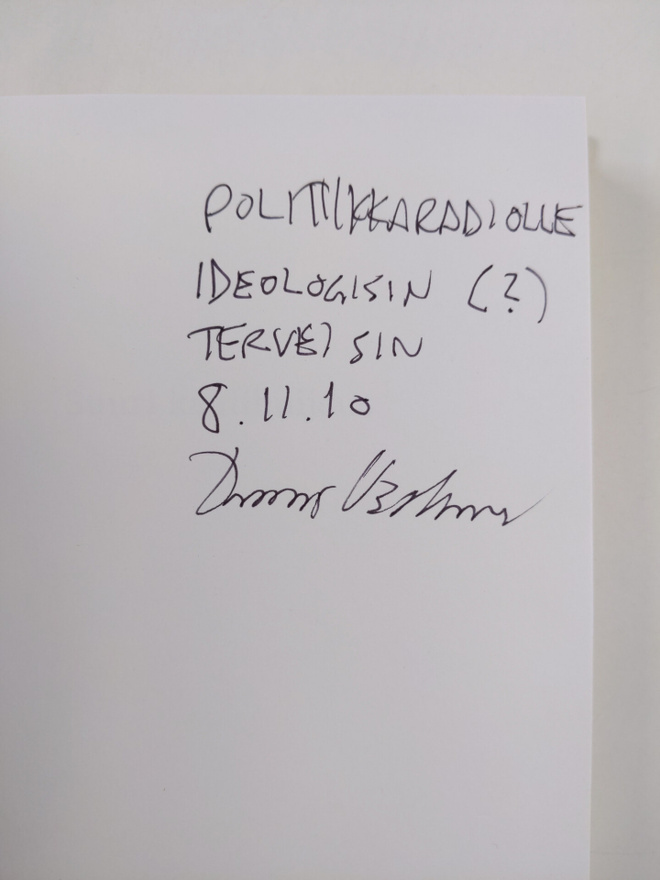 POLITIIKKARADIOLLE
IDEOLOGISIN (?)
TERVEISIN
8.11.10